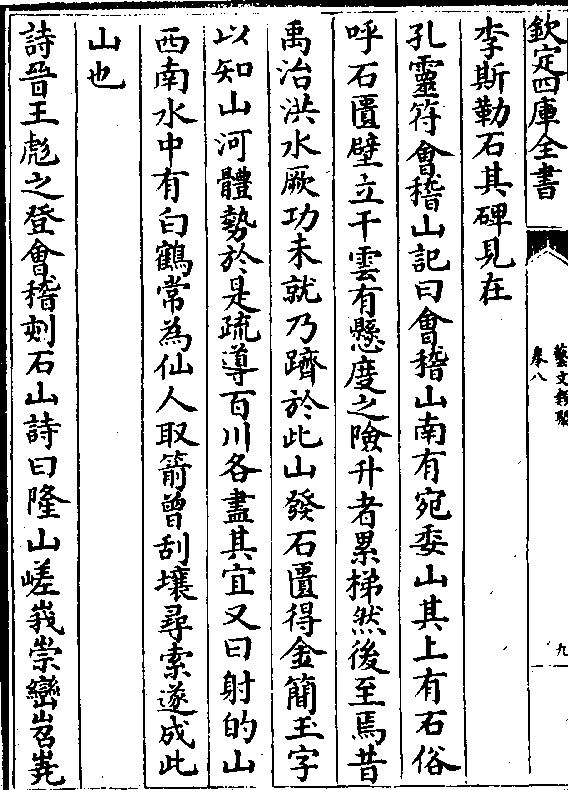 欽定四庫全書
藝文類聚
卷八
九
李斯勒石其碑見在
孔靈符會稽山記曰會稽山南有宛委山其上有石俗
呼石匱壁立干雲有懸度之險升者累梯然後至焉昔
禹治洪水厥功未就乃躋於此山發石匱得金簡玉字
以知山河體勢於是疏導百川各盡其宜又曰射的山
西南水中有白鶴常為仙人取箭曾刮壤尋索遂成此
山也
詩晉王彪之登會稽刻石山詩曰隆山嵯峩崇巒岧嶤